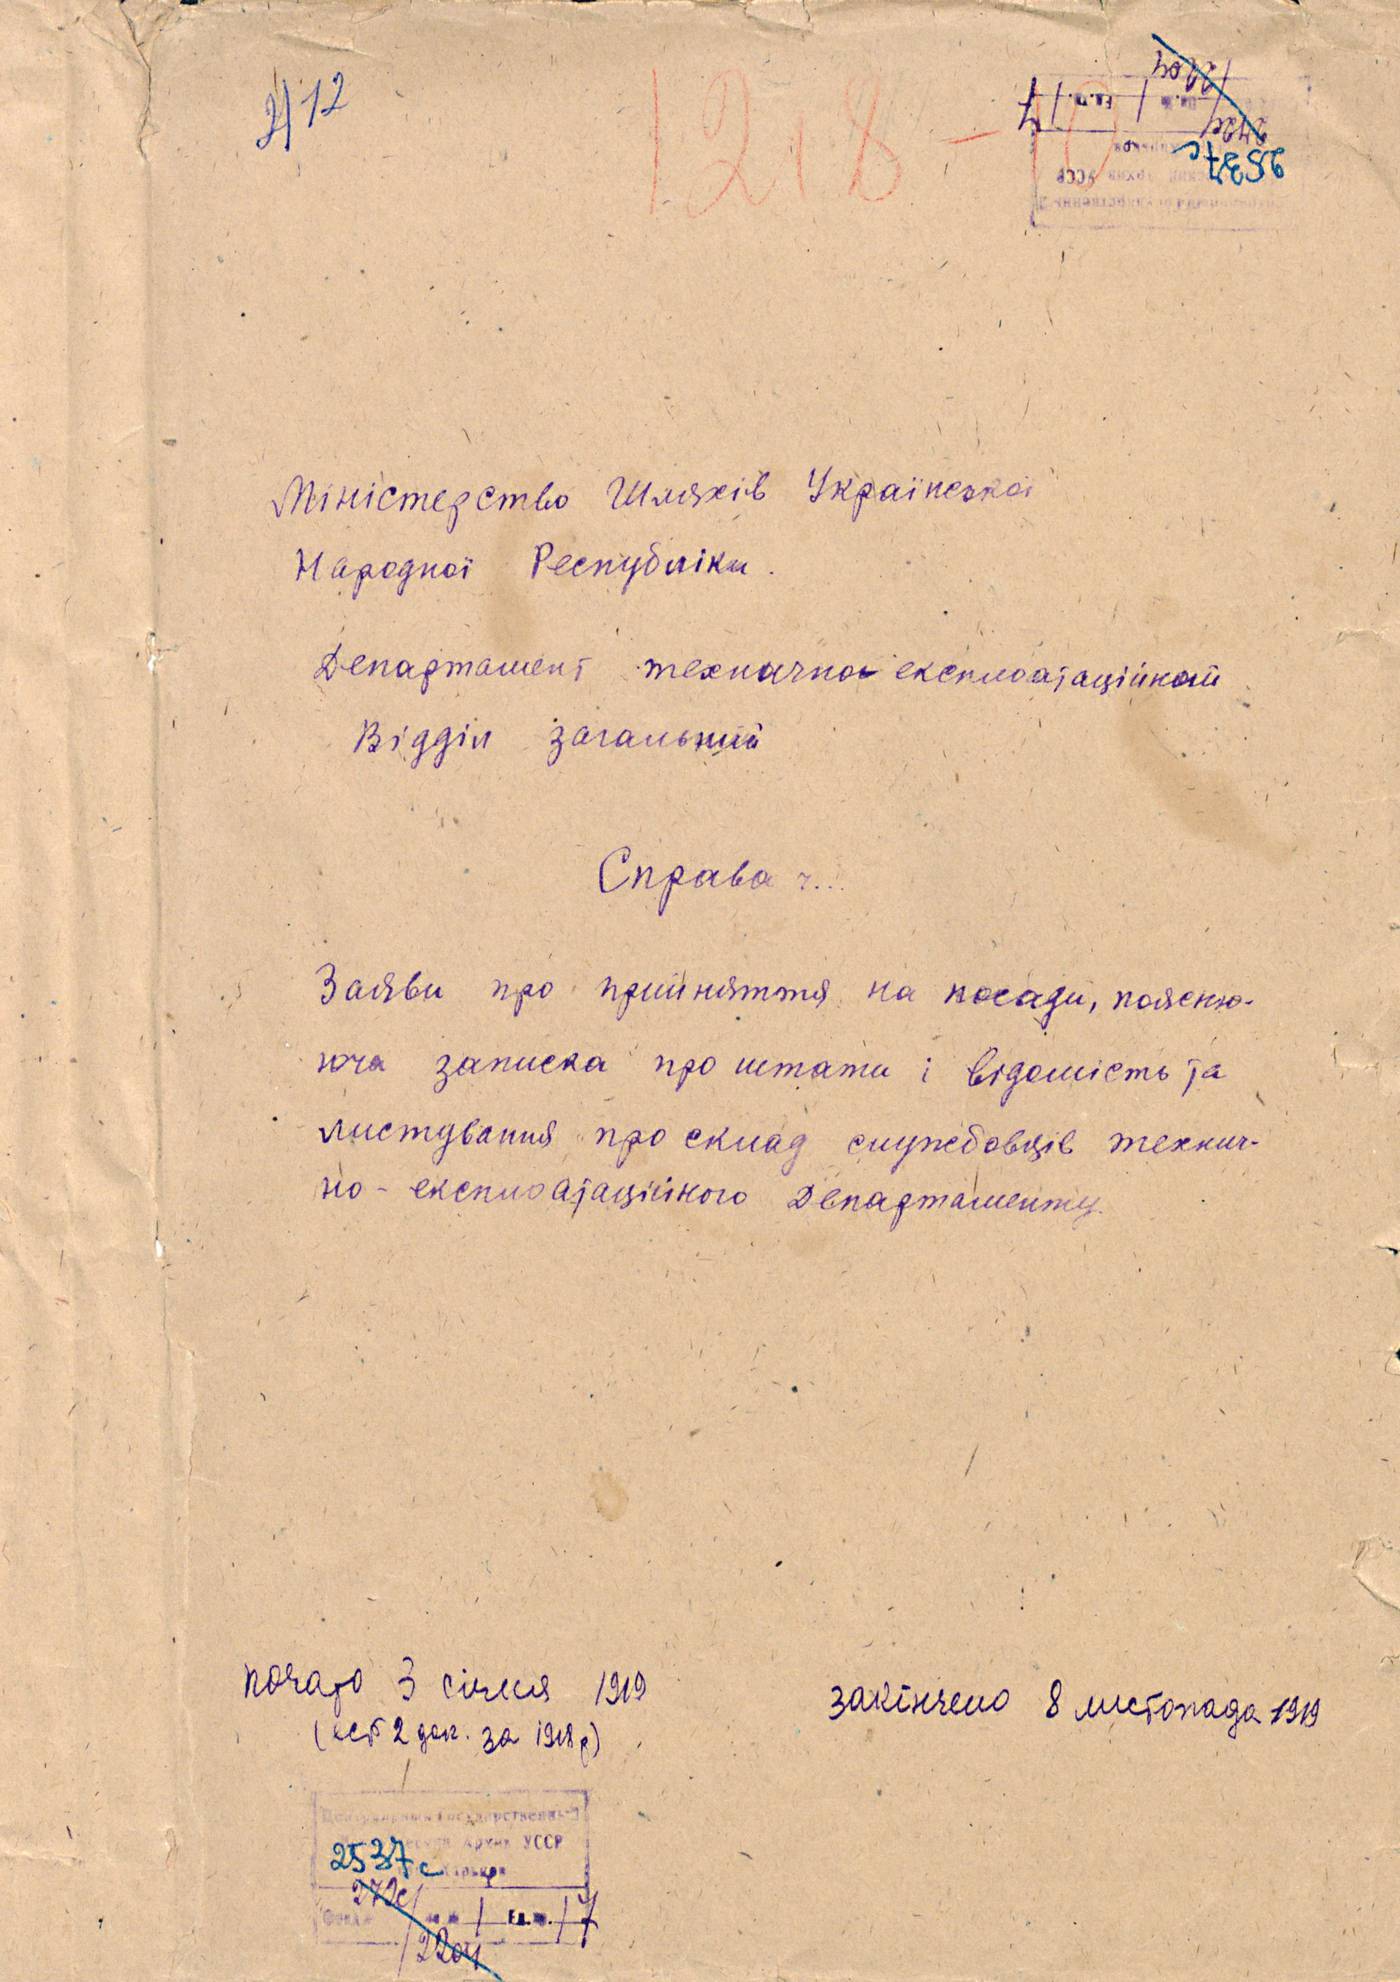 2/12
1218-10
2537с
Міністерство Шляхів Української
Народної Республіки.
Департамент технично експлоатаційний
Відділ загальний
Справа ч...
Заяви про прийняття на посади, поясню-
юча записка про штати і відомість та
листування про склад службовців технич-
но-експлоатаційного Департаменту.
почато 3 січня 1919
(єст 2 док. за 1918 р)
закінчено 8 листопада 1919
Центральный Государственный
Исторический Архив УССР
2537с Харьков
272с
Фонд № оп. № 1 Ед.хр. 7
2204